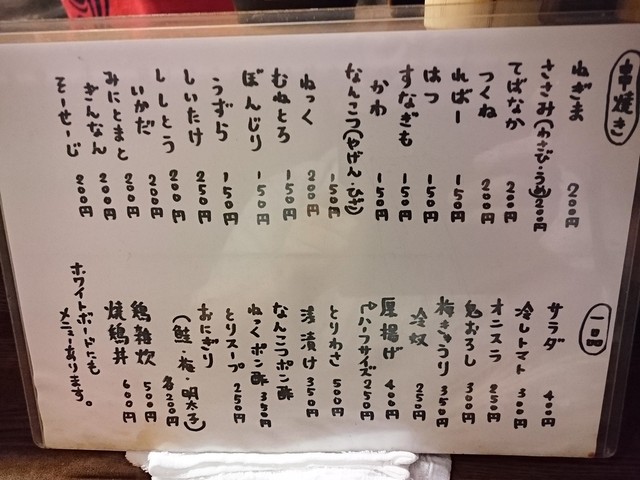 串焼き
ねぎま 200円
ささみ(わさび・うめ) 200円
てばなか 200円
つくね 200円
ればー 150円
はつ 150円
すなぎも 150円
かわ 150円
なんこつ(やげん・ひざ) 150円
ねっく 200円
むねとろ 150円
ぼんじり 150円
うずら 150円
しいたけ 250円
ししとう 200円
いかだ 200円
みにとまと 200円
ぎんなん 200円
そーせーじ 200円
一品
サラダ 400円
冷しトマト 300円
オニスラ 250円
鬼おろし 300円
梅きゅうり 350円
冷奴 250円
厚揚げ 400円
↳ハーフサイズ 250円
とりわさ 500円
浅漬け 350円
なんこつポン酢
ねっくポン酢 350円
とりスープ 250円
おにぎり
(鮭・梅・明太子) 各200円
鶏雑炊 500円
焼鶏丼 600円
ホワイトボードにも
メニューあります。